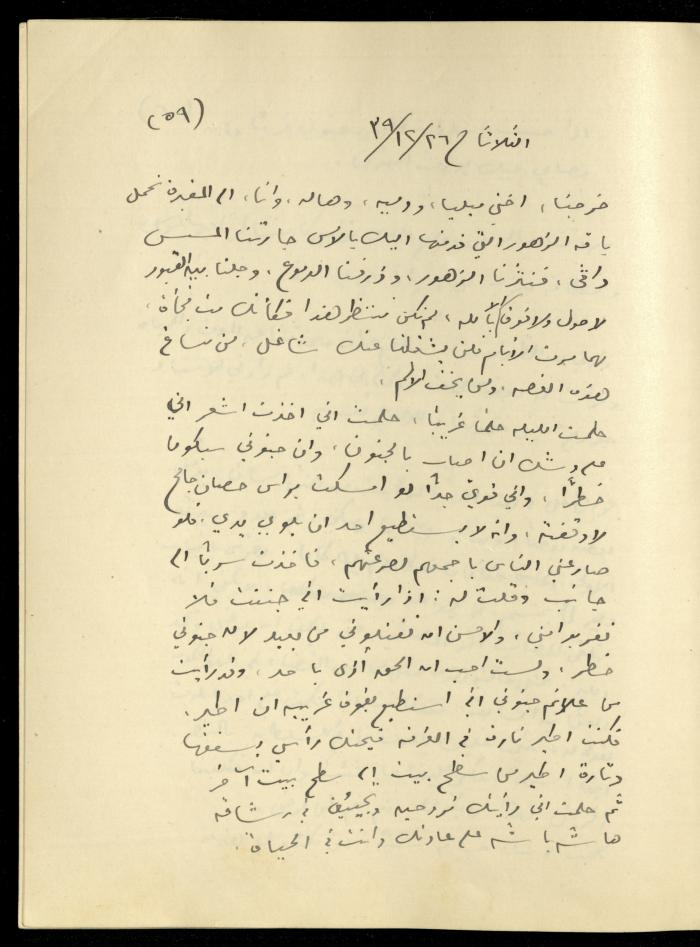 (٥٩)
الثلاثاء ٣٩/١٢/٢٦
خرجنا، اختي ميليا، ودميه، وهاله، وانا، الى المقبرة نحمل
باقة الزهور التي قدمتها اليك بالامس جارتنا المسس
فنثرنا الزهور، وذرفنا الدموع، وجلنا بين القبور
لا حول ولا قوة الا بالله، لم نكن ننتظر هذا فكأنك مت فجأة،
مهما مرت الأيام فلن يشغلنا عنك شاغل، من
هذه الغصه، ومن يخفف الالم.
حلمت الليله حلماً غريباً، حلمت اني اخذت اشعر اني
على وشك ان اصاب بالجنون، وان جنوني سيكون
خطراً، واني قوي جداً لو امسكت براس حصان جامح
لاوقفته، وانه لا يستطيع احد ان يلوي يدي، فلو
صارعني الناس باجمعهم لصرعتهم، فاخذت سرياً الى
جانب وقلت له: اذا رأيت اني جننت فلا
تقرب مني، والاحسن ان تقتلوني من بعيد لان جنوني
خطر، ولست احب ان الحق أذى باحد، وقد رأيت
من علائم جنوني اني استطيع بقوة غريبه ان اطير.
فكنت اطير تارة في الغرفه فيحتك رأسي بسقفها
وتارة اطير من سطح بيت الى سطح بيت آخر
ثم حلمت اني رأيتك تروحين وتجيئين في رشاقه
هاشه باشه على عادتك وانت في الحياة.